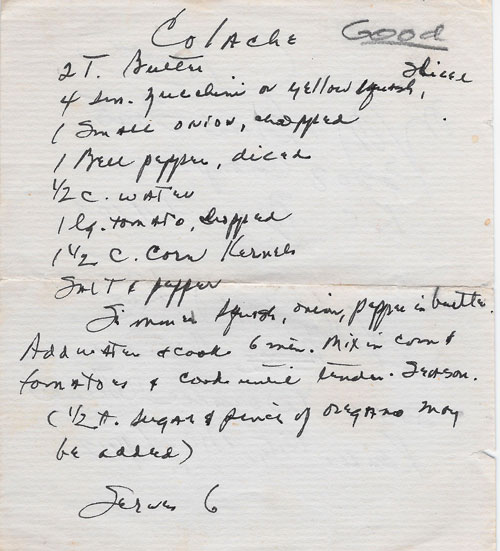 Colache Good
2 T. Butter
4 sm. zucchini or yellow squash, sliced
1 small onion, chopped
1 Bell pepper, diced
1/2 c. water
1 lg. tomato, chopped
1 1/2 c. corn kernels
Salt & pepper
Simmer squash, onion, pepper in butter.
Add water & cook 6 min. Mix in corn &
tomatoes & cook until tender. Season.
(1/2 t. sugar & pinch of oregano may
be added)
Serves 6